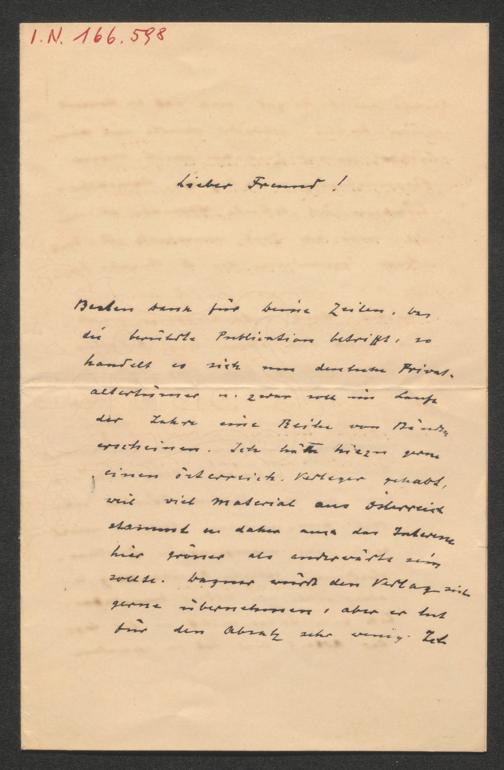 I.N. 166.598
Lieber Freund!
Besten Dank für deine Zeilen. Was
die berührte Publication betrifft, so
handelt es sich um deutsche Privat-
alterthümer u. zwar soll im Laufe
der Jahre eine Reihe von Bänden
erscheinen. Ich hätte hiezu gerne
einen österreich. Verleger gehabt,
weil viel Material aus Österreich
stammt u. daher auch das Interesse
hier grösser als anderwärts sein
sollte. Wagner würde den Verlag
gerne übernehmen, aber er tut
für den Absatz sehr wenig. Ich